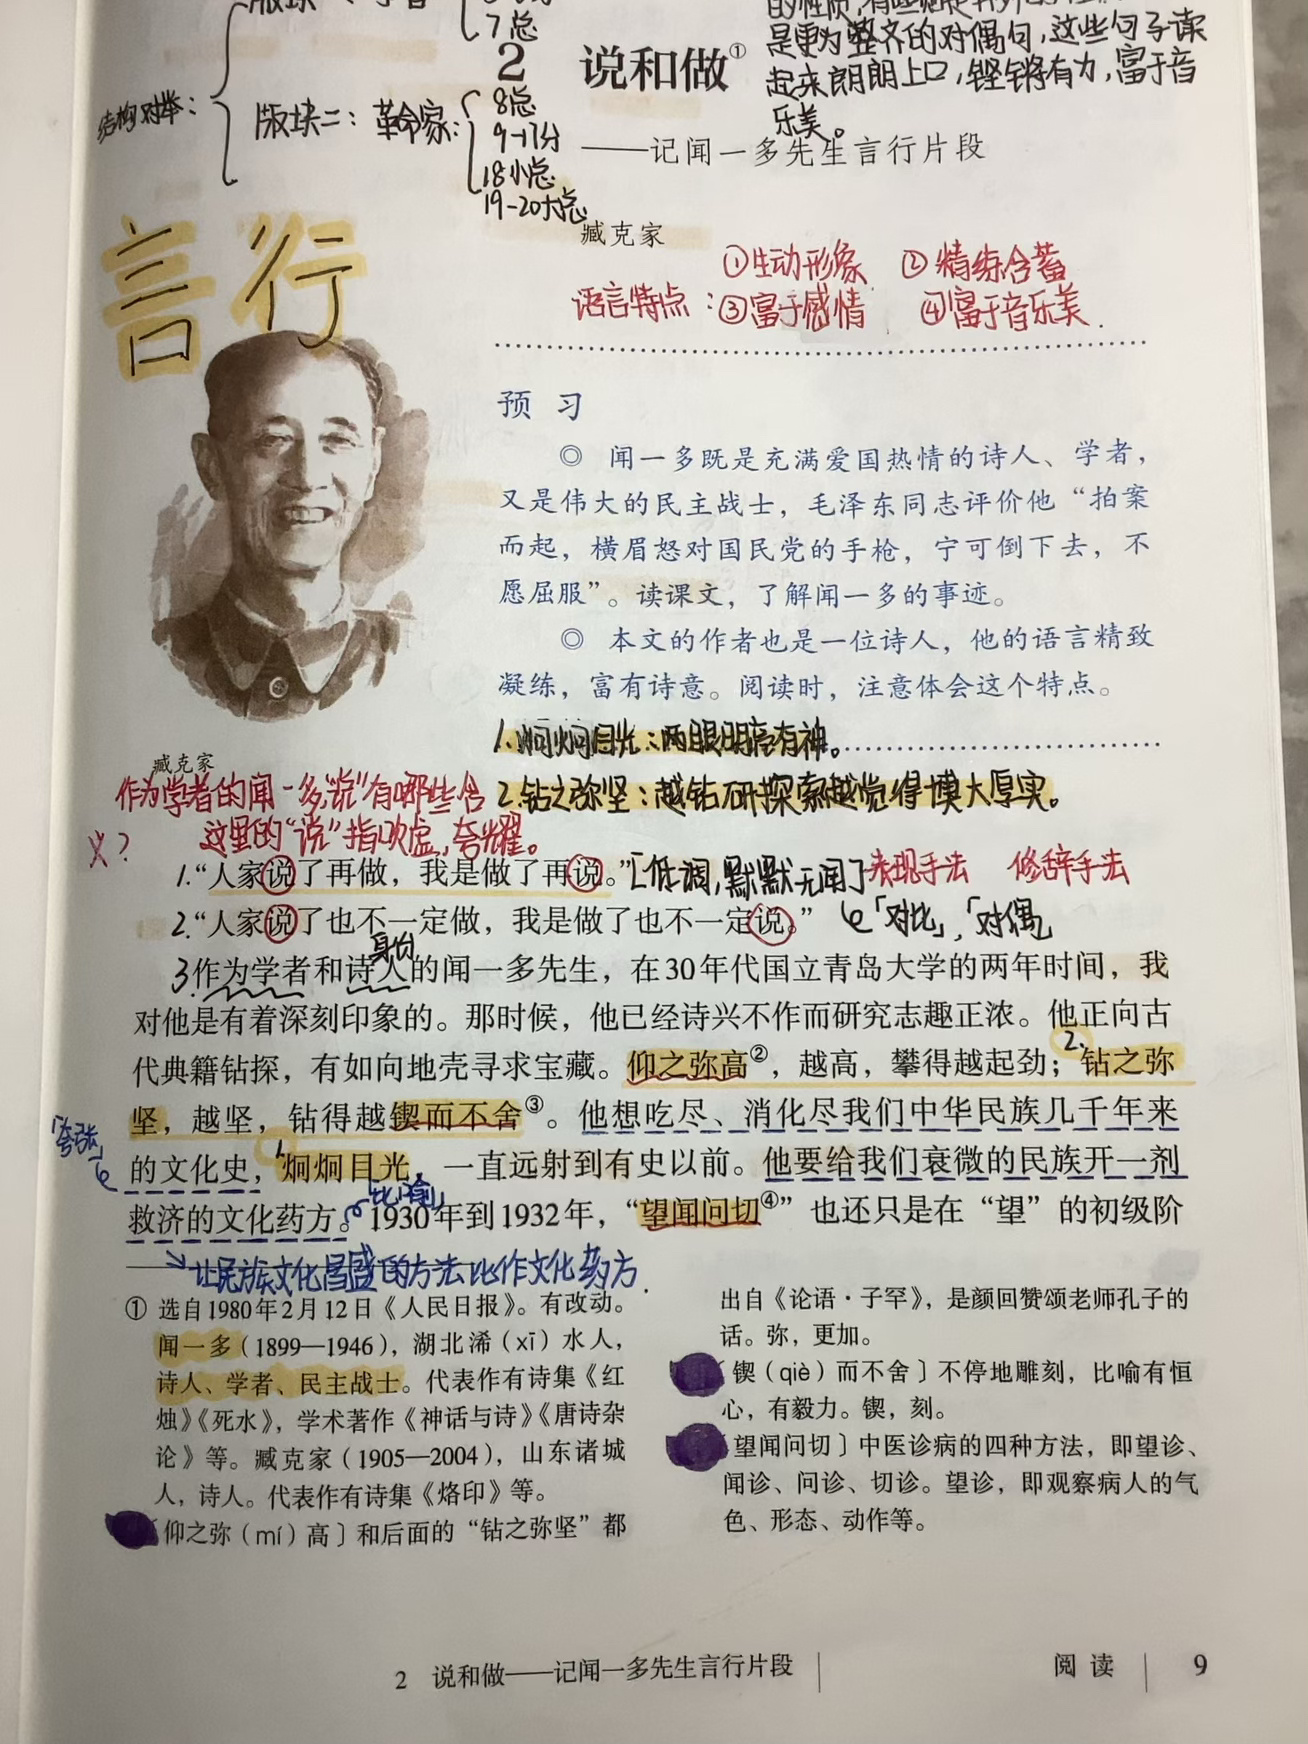 7总
是更为整齐的对偶句,这些句子读
起来朗朗上口,铿锵有力,富于音
乐美。
2 说和做①
——记闻一多先生言行片段
臧克家
结构对举:
版块二:革命家:
8总
9-17分
18小总
19-20大总
言行
语言特点:①生动形象 ②精练含蓄
③富于感情 ④富于音乐美.
预 习
◎ 闻一多既是充满爱国热情的诗人、学者,
又是伟大的民主战士,毛泽东同志评价他“拍案
而起,横眉怒对国民党的手枪,宁可倒下去,不
愿屈服”。读课文,了解闻一多的事迹。
◎ 本文的作者也是一位诗人,他的语言精致
凝练,富有诗意。阅读时,注意体会这个特点。
1.炯炯目光:两眼明亮有神。
2.钻之弥坚:越钻研探索越觉得博大厚实。
臧克家
作为学者的闻一多“说”有哪些含
义?
这里的“说”指吹虚,夸耀。
1.“人家说了再做,我是做了再说。”
「低调,默默无闻」
表现手法 修辞手法
2.“人家说了也不一定做,我是做了也不一定说。”
「对比」,「对偶
身份
3.作为学者和诗人的闻一多先生,在30年代国立青岛大学的两年时间,我
对他是有着深刻印象的。那时候,他已经诗兴不作而研究志趣正浓。他正向古
代典籍钻探,有如向地壳寻求宝藏。仰之弥高②,越高,攀得越起劲;2.钻之弥
坚,越坚,钻得越锲而不舍③。他想吃尽、消化尽我们中华民族几千年来
「夸张」
的文化史,1.炯炯目光,一直远射到有史以前。他要给我们衰微的民族开一剂
「比喻」
救济的文化药方。1930年到1932年,“望闻问切④”也还只是在“望”的初级阶
让民族文化昌盛的方法比作文化药方.
① 选自1980年2月12日《人民日报》。有改动。
闻一多(1899—1946),湖北浠(xī)水人,
诗人、学者、民主战士。代表作有诗集《红
烛》《死水》,学术著作《神话与诗》《唐诗杂
论》等。臧克家(1905—2004),山东诸城
人,诗人。代表作有诗集《烙印》等。
仰之弥(mí)高〕和后面的“钻之弥坚”都
出自《论语·子罕》,是颜回赞颂老师孔子的
话。弥,更加。
锲(qiè)而不舍〕不停地雕刻,比喻有恒
心,有毅力。锲,刻。
望闻问切〕中医诊病的四种方法,即望诊、
闻诊、问诊、切诊。望诊,即观察病人的气
色、形态、动作等。
2 说和做——记闻一多先生言行片段
阅读 9